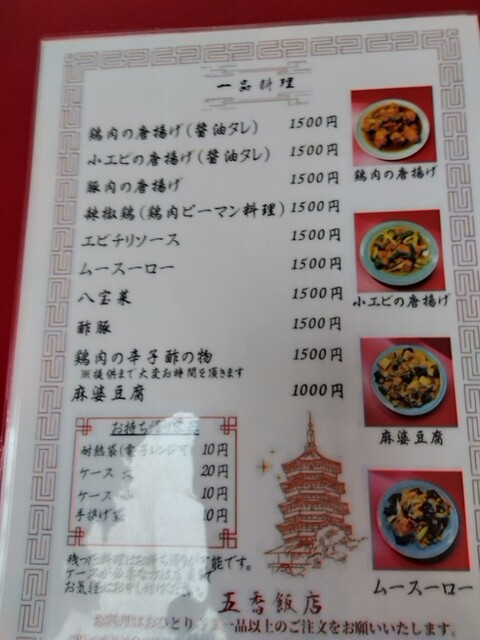 一品料理
鶏肉の唐揚げ(醤油タレ) 1500円
小エビの唐揚げ(醤油タレ) 1500円
豚肉の唐揚げ 1500円
辣椒鶏(鶏肉ピーマン料理) 1500円
エビチリソース 1500円
ムースーロー 1500円
八宝菜 1500円
酢豚 1500円
鶏肉の辛子酢の物 1500円
※提供まで大変お時間を頂きます
麻婆豆腐 1000円
鶏肉の唐揚げ
小エビの唐揚げ
麻婆豆腐
ムースーロー
お持ち帰り
耐熱袋(電子レンジ可) 10円
ケース 20円
ケース 10円
手提げ袋 10円
残った料理はお持ち帰り可能です。
ケースが必要な方は
お気軽にお申し付けください
五香飯店
お料理はおひとり様一品以上のご注文をお願いいたします。